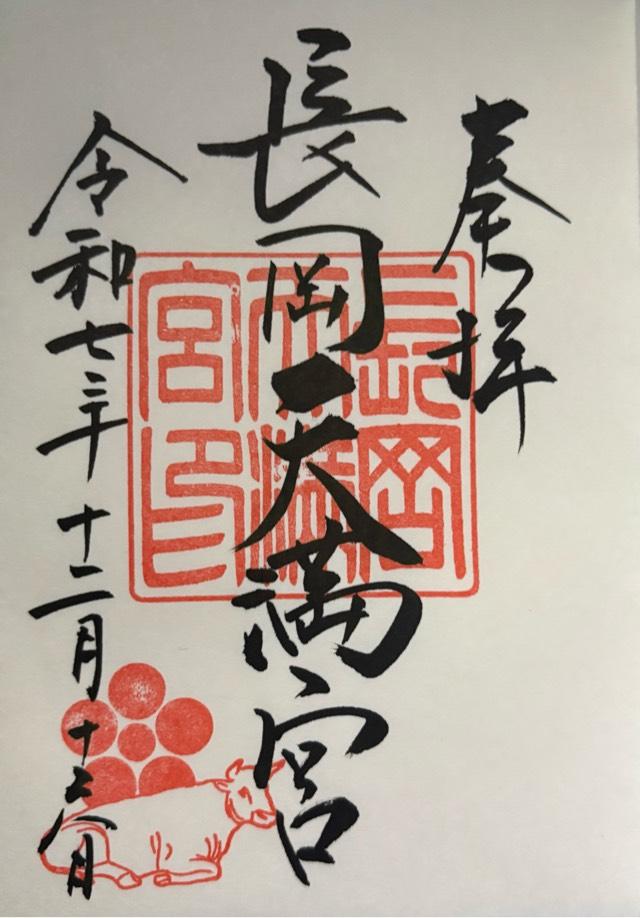 奉拝
長岡天満宮
令和七年十二月十六日
長岡
天満
宮印